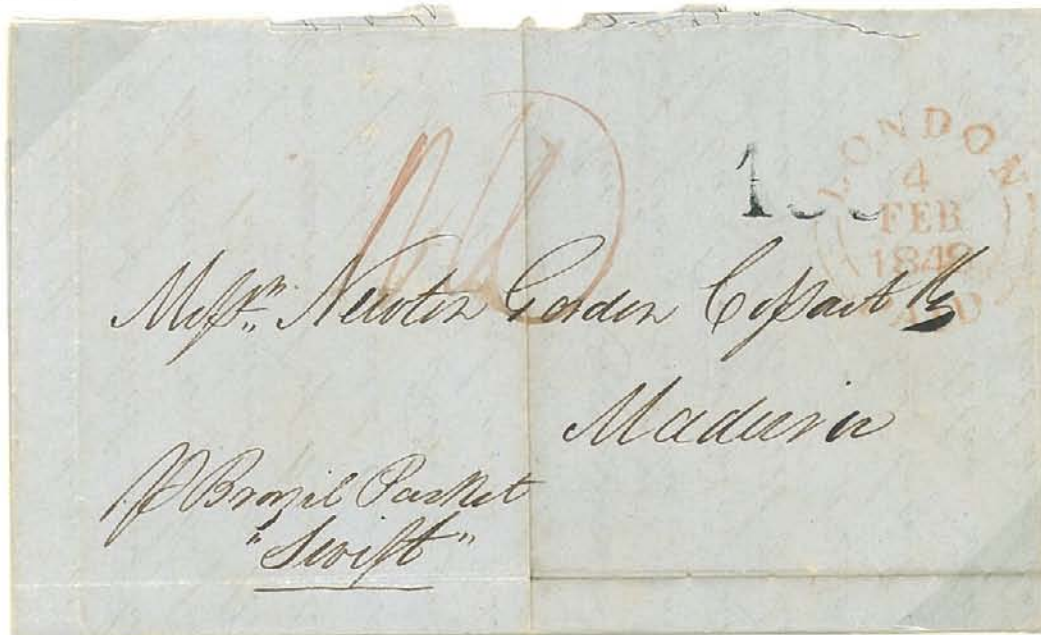 LONDON
4
FEB
PAID
Messrs. Newton Gordon Cossart & Co
Madeira
p Brazil Packet
"Swift"